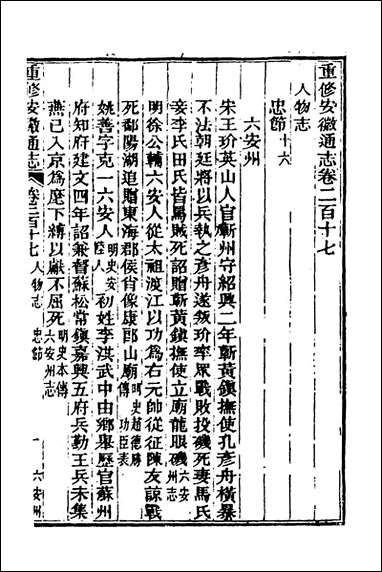 重修安徽通志卷二百十七
人物志
忠節十六
六安州
宋王玠英山人官蘄州守紹興二年蘄黃鎮撫使孔彥舟橫暴
不法朝廷將以兵執之彥舟遂叛玠率眾戰敗投磯死妻馬氏
妾李氏田氏皆罵賊死詔贈蘄黃鎮撫使立廟龍眼磯六安州志
明徐公輔六安人從太祖渡江以功為右元帥從征陳友諒戰
死鄱陽湖追贈東海郡侯肖像康郎山廟明史趙德勝傳功臣表
姚善字克一六安人明史安陸人初姓李洪武中由鄉舉歷官蘇州
府知府建文四年詔兼督蘇松常鎮嘉興五府兵勤王兵未集
燕已入京為麾下縛以獻不屈死明史本傳六安州志
重修安徽通志 卷二百十七 人物志 忠節 一 六安州